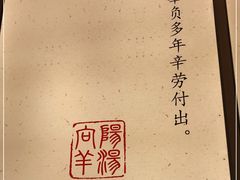 负多年辛劳付出。
向陽
羊湯